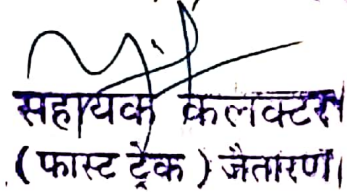 सहायक कलक्टर
(फास्ट ट्रैक) जैतारण।